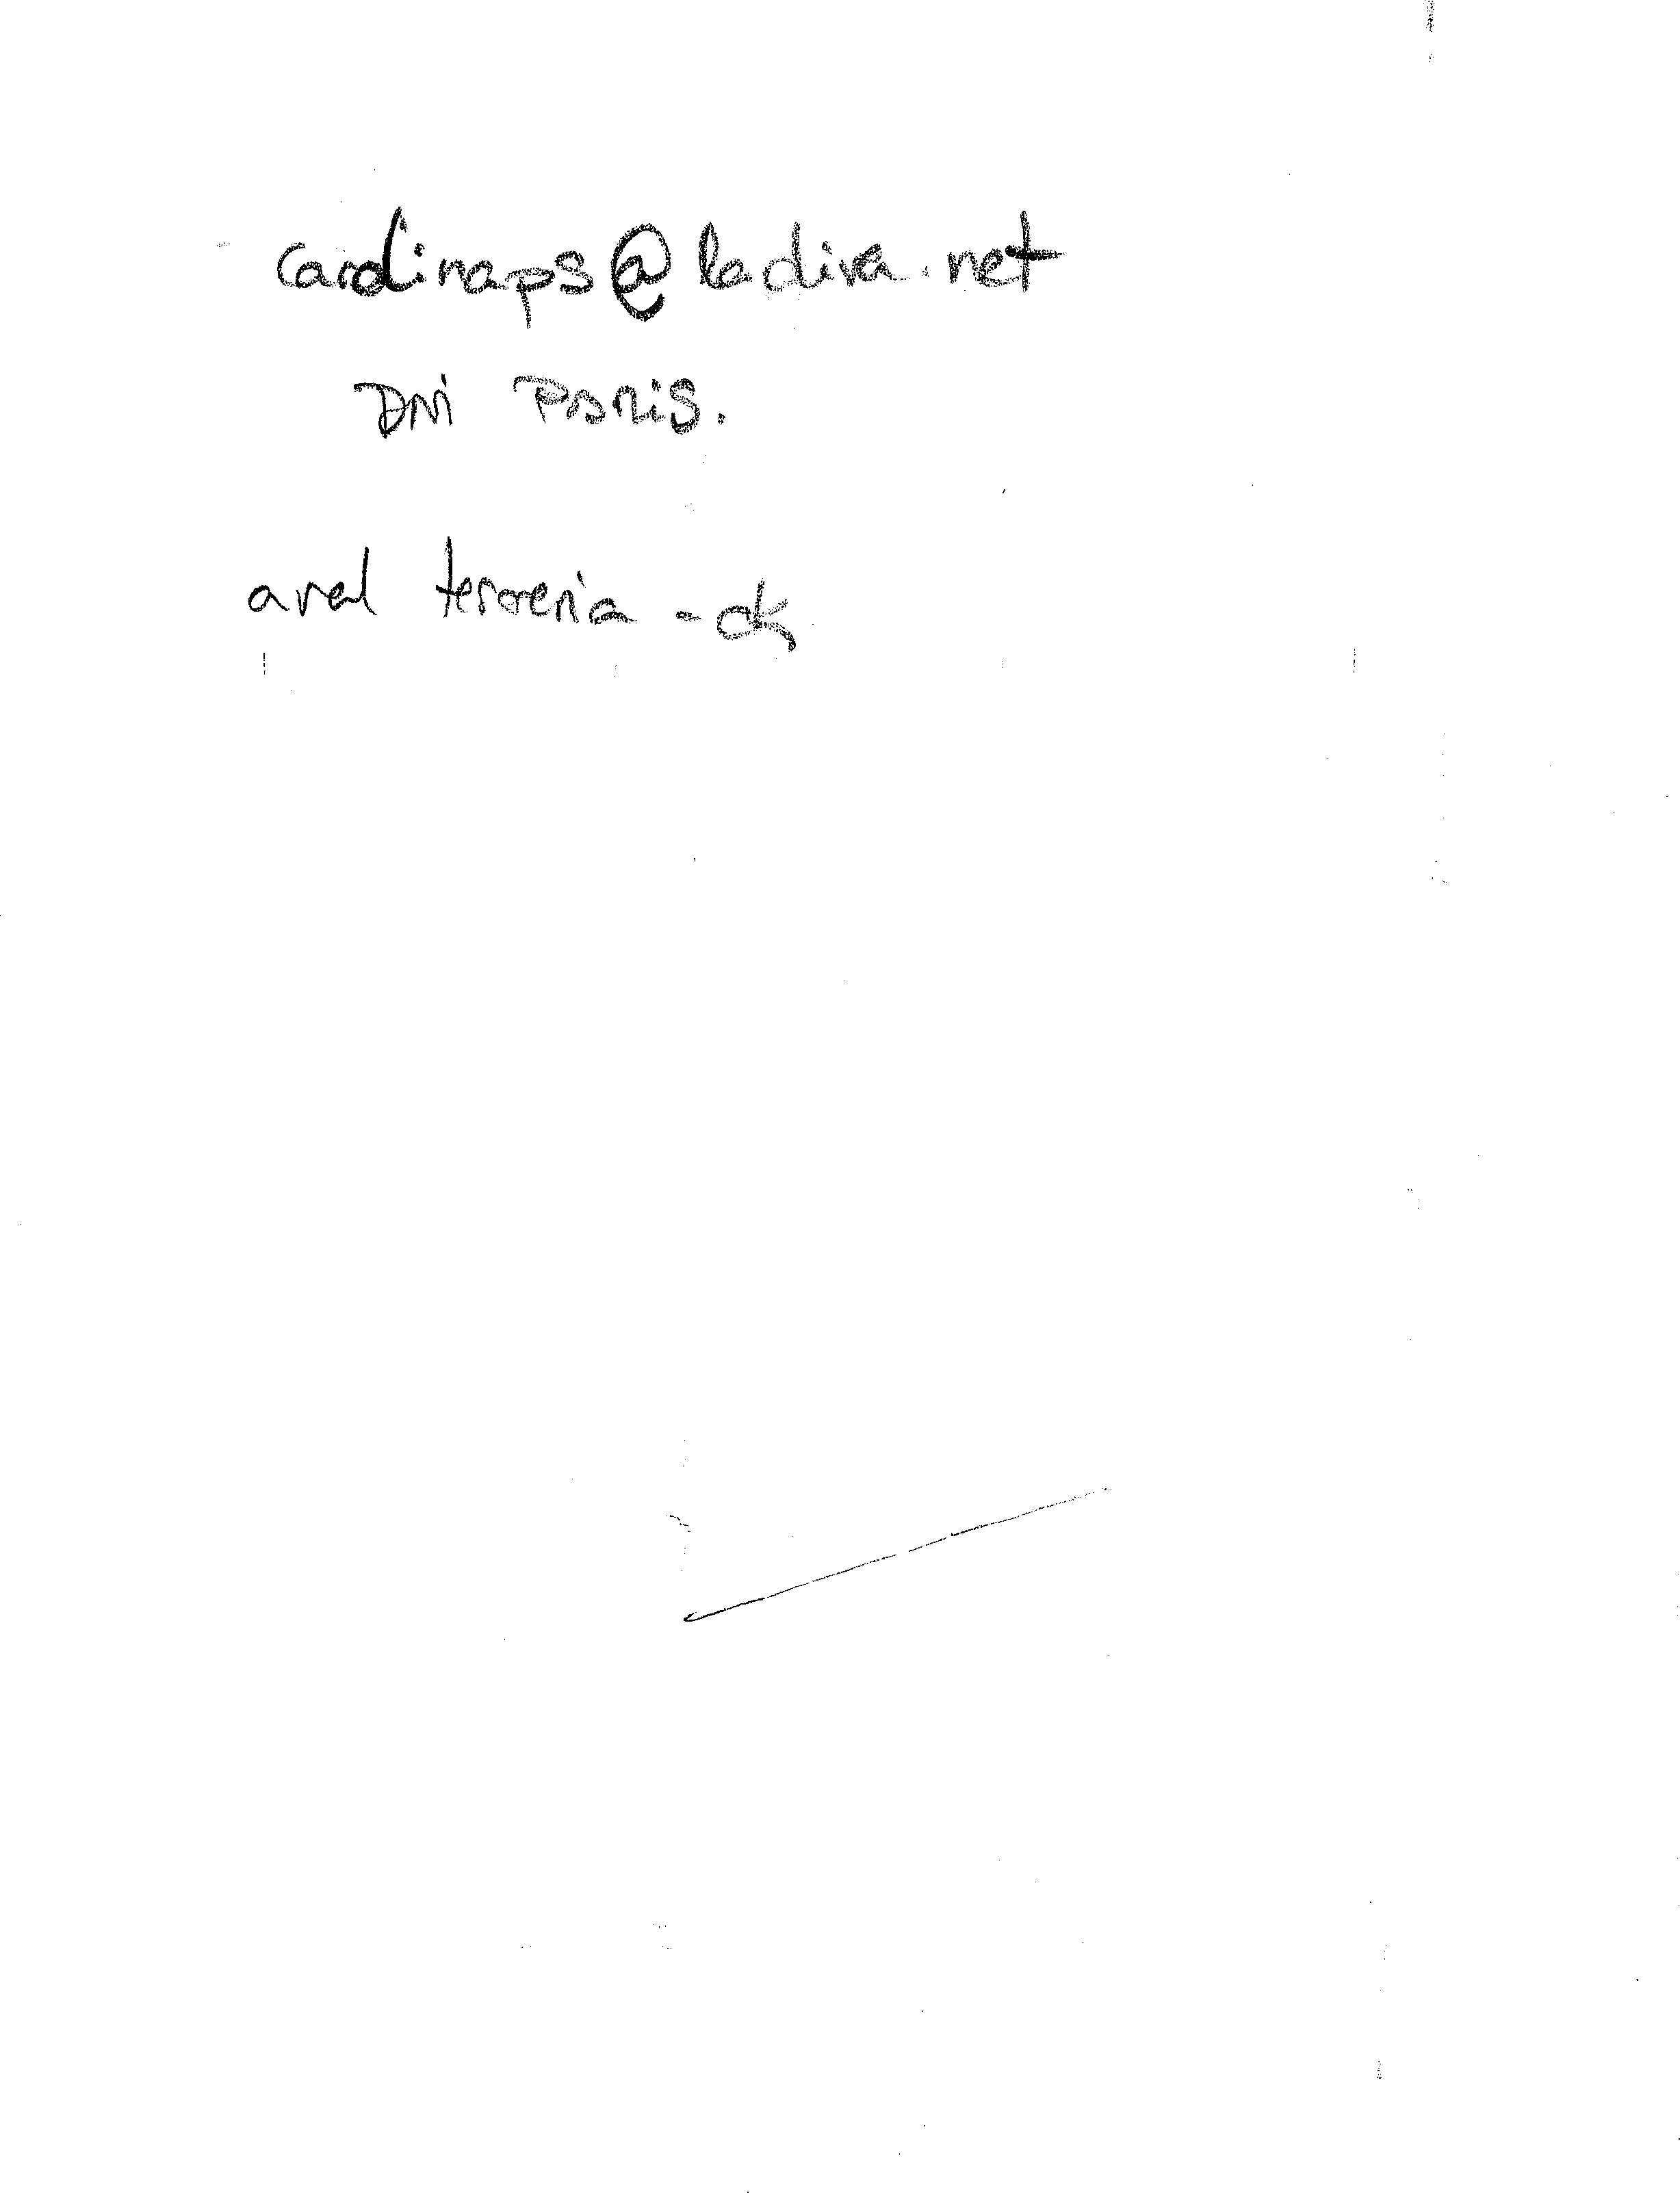 cardinaps@ladiva.net
DNi PARiS.
aval tesoreria - ok